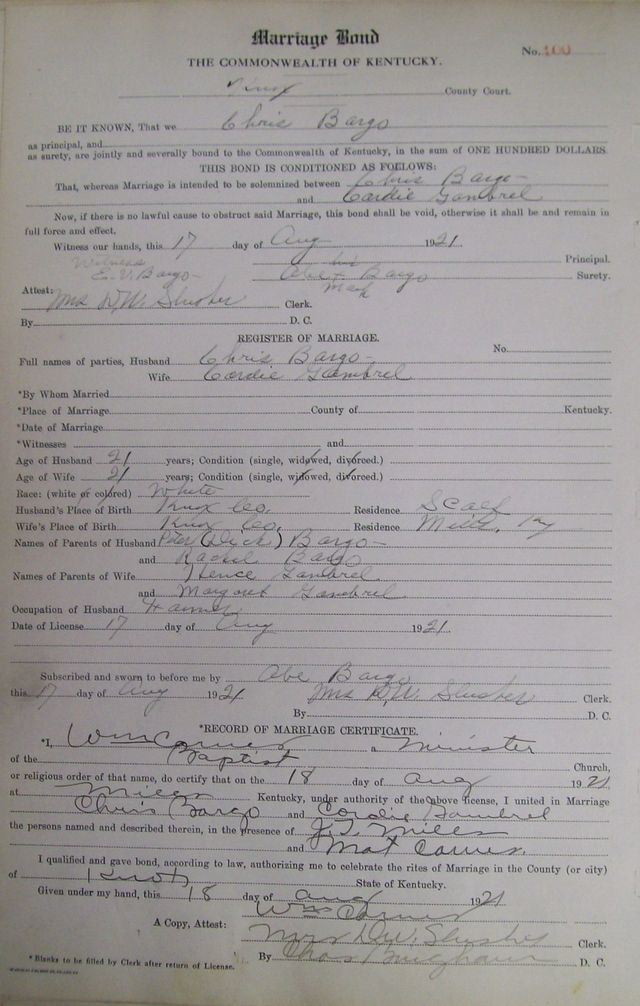 Marriage Bond
No. 100
THE COMMONWEALTH OF KENTUCKY.
Knox County Court.
BE IT KNOWN, That we Chris Bargo
as principal, and
as surety, are jointly and severally bound to the Commonwealth of Kentucky, in the sum of ONE HUNDRED DOLLARS.
THIS BOND IS CONDITIONED AS FOLLOWS:
That, whereas Marriage is intended to be solemnized between Chris Bargo
and Cordie Gambrel
Now, if there is no lawful cause to obstruct said Marriage, this bond shall be void, otherwise it shall be and remain in
full force and effect.
Witness our hands, this 17 day of Aug 1921
Witness his Principal.
E. V. Bargo Abe x Bargo Surety.
mark
Attest:
Mrs D.W. Slusher Clerk.
By D. C.
REGISTER OF MARRIAGE.
No.
Full names of parties, Husband Chris Bargo
Wife Cordie Gambrel
*By Whom Married
*Place of Marriage County of Kentucky.
*Date of Marriage
*Witnesses and
Age of Husband 21 years; Condition (single, widowed, divorced.)
Age of Wife 21 years; Condition (single, widowed, divorced.)
Race: (white or colored) White
Husband's Place of Birth Knox Co. Residence Scalf
Wife's Place of Birth Knox Co. Residence Mills, Ky
Names of Parents of Husband Peter (Dick) Bargo
and Rachel Bargo
Names of Parents of Wife Hence Gambrel
and Margaret Gambrel
Occupation of Husband Farmer
Date of License 17 day of Aug 1921
Subscribed and sworn to before me by Abe Bargo
this 17 day of Aug 1921 Mrs D.W. Slusher Clerk.
By D. C.
*RECORD OF MARRIAGE CERTIFICATE.
*I, Wm a Minister
of the Baptist Church,
or religious order of that name, do certify that on the 18 day of Aug 1921
at Mills Kentucky, under authority of the above license, I united in Marriage
Chris Bargo and Cordie Gambrel
the persons named and described therein, in the presence of Mills
and Mat
I qualified and gave bond, according to law, authorizing me to celebrate the rites of Marriage in the County (or city)
of Knox State of Kentucky.
Given under my hand, this 18 day of Aug 1921
Wm
A Copy, Attest: Mrs D.W. Slusher Clerk.
* Blanks to be filled by Clerk after return of License. By Chas Bingham D. C.